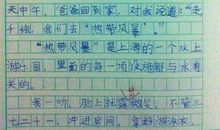 天中午，爸爸回到家，对我说道：“走
仟细，我们去“热带风暴”。”
“热带风暴”是上海的一个水上
游乐园，里面的每一项设施都与水有
关的。
我一听，脸上就露微笑，不管三
七二十一，冲进房间，拿好游泳衣、